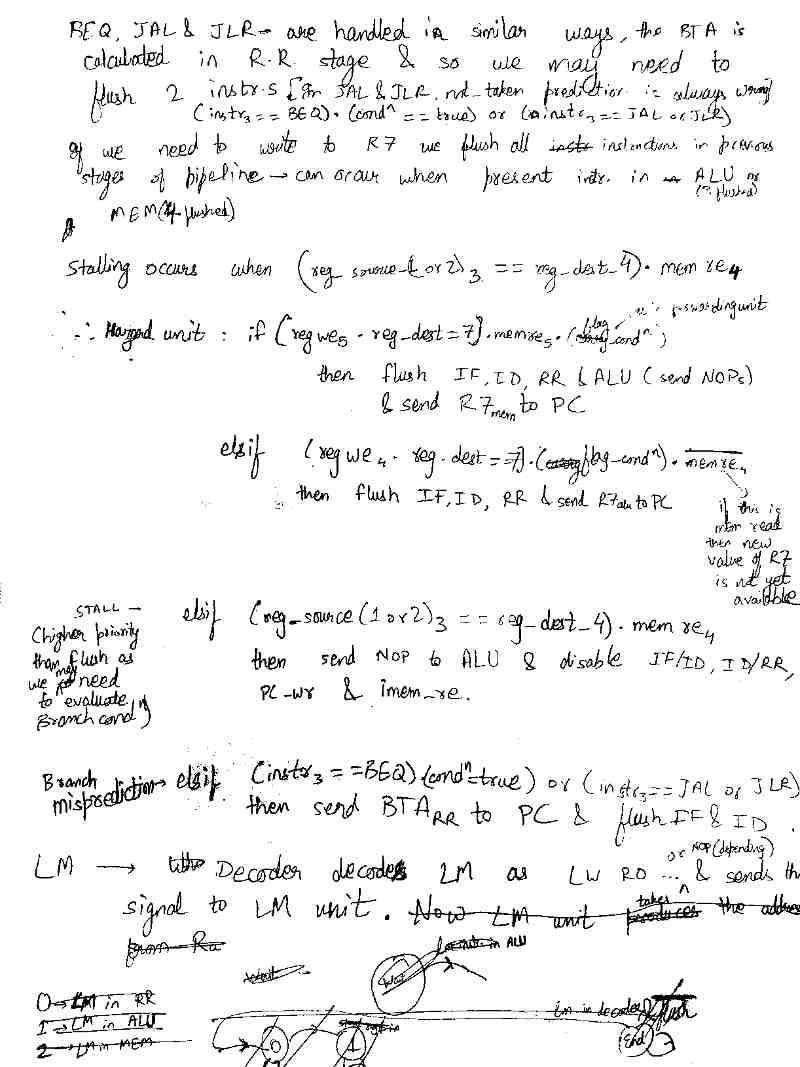 BEQ, JAL & JLR → are handled in similar ways, the BTA is
calculated in R.R. stage & so we may need to
flush 2 instr.s [In JAL & JLR, not-taken prediction is always wrong]
(instr3 == BEQ)·(condⁿ == true) or (instr3 == JAL or JLR)
If we need to write to R7 we flush all instr instructions in previous
stages of pipeline → can occur when present instr. in ALU or
(3 flushed)
MEM (4 flushed)
Stalling occurs when (reg source-1 or 2)3 == reg_dest_4)· mem re4
in forwarding unit
∴ Hazard unit : if (regwe5 · reg_dest = 7)·memre5·(flag_condⁿ)
then flush IF, ID, RR & ALU (send NOPs)
& send R7mem to PC
elsif (regwe4 · reg-dest == 7)·(flag_condⁿ)· memre4
then flush IF, ID, RR & send R7alu to PC
if this is
mem read
then new
value of R7
is not yet
available
STALL -
(higher priority
than flush as
we may need
to evaluate
Branch condⁿ)
elsif (reg_source (1 or 2)3 == reg_dest_4)· mem re4
then send NOP to ALU & disable IF/ID, ID/RR,
PC_wr & imem_re.
Branch
misprediction → elsif (instr3 == BEQ)(condⁿ=true) or (instr3 == JAL or JLR)
then send BTARR to PC & flush IF & ID.
or NOP (depending)
LM → Decoder decodes LM as LW R0 ... & sends th
signal to LM unit. Now LM unit produces takes the addres
from Ra
Wait
LM in ALU
0 → LM in RR
1 → LM in ALU
2 → LM in MEM
LM in decoder & flush
0
1
End